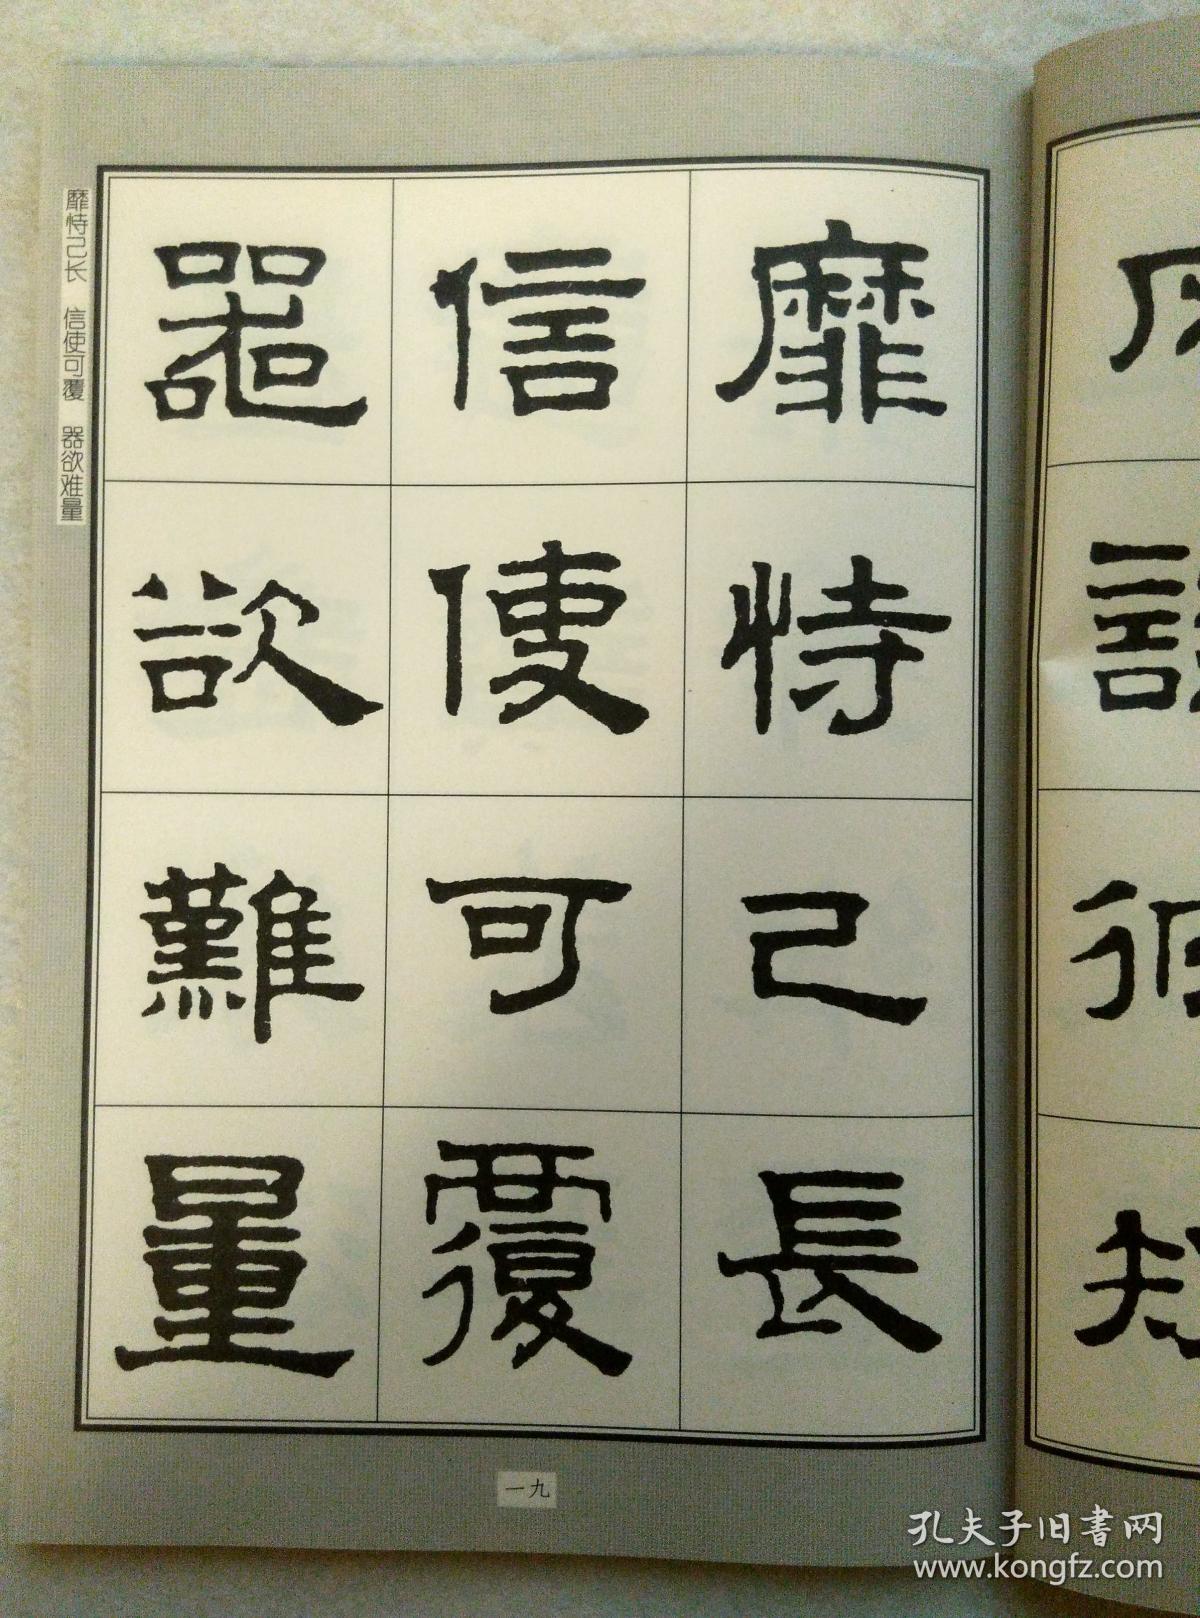 靡恃己長
信使可覆
器欲難量
靡恃己长　信使可覆　器欲难量
一九
孔夫子旧書网
www.kongfz.com